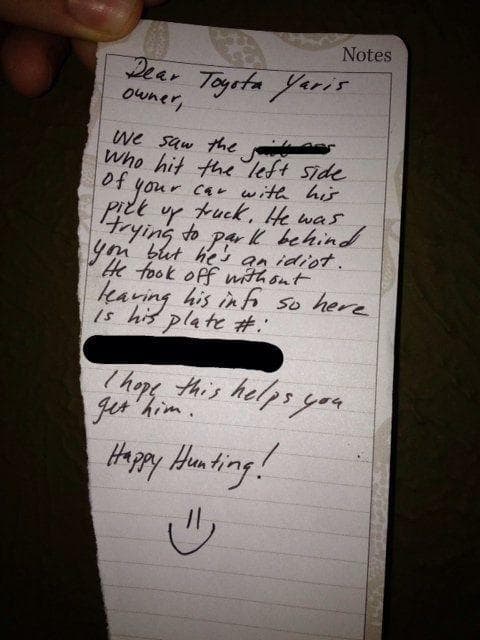 Notes
Dear Toyota Yaris
owner,
We saw the
who hit the left side
of your car with his
pick up truck. He was
trying to park behind
you but he's an idiot.
He took off without
leaving his info so here
is his plate #:
I hope this helps you
get him.
Happy Hunting!